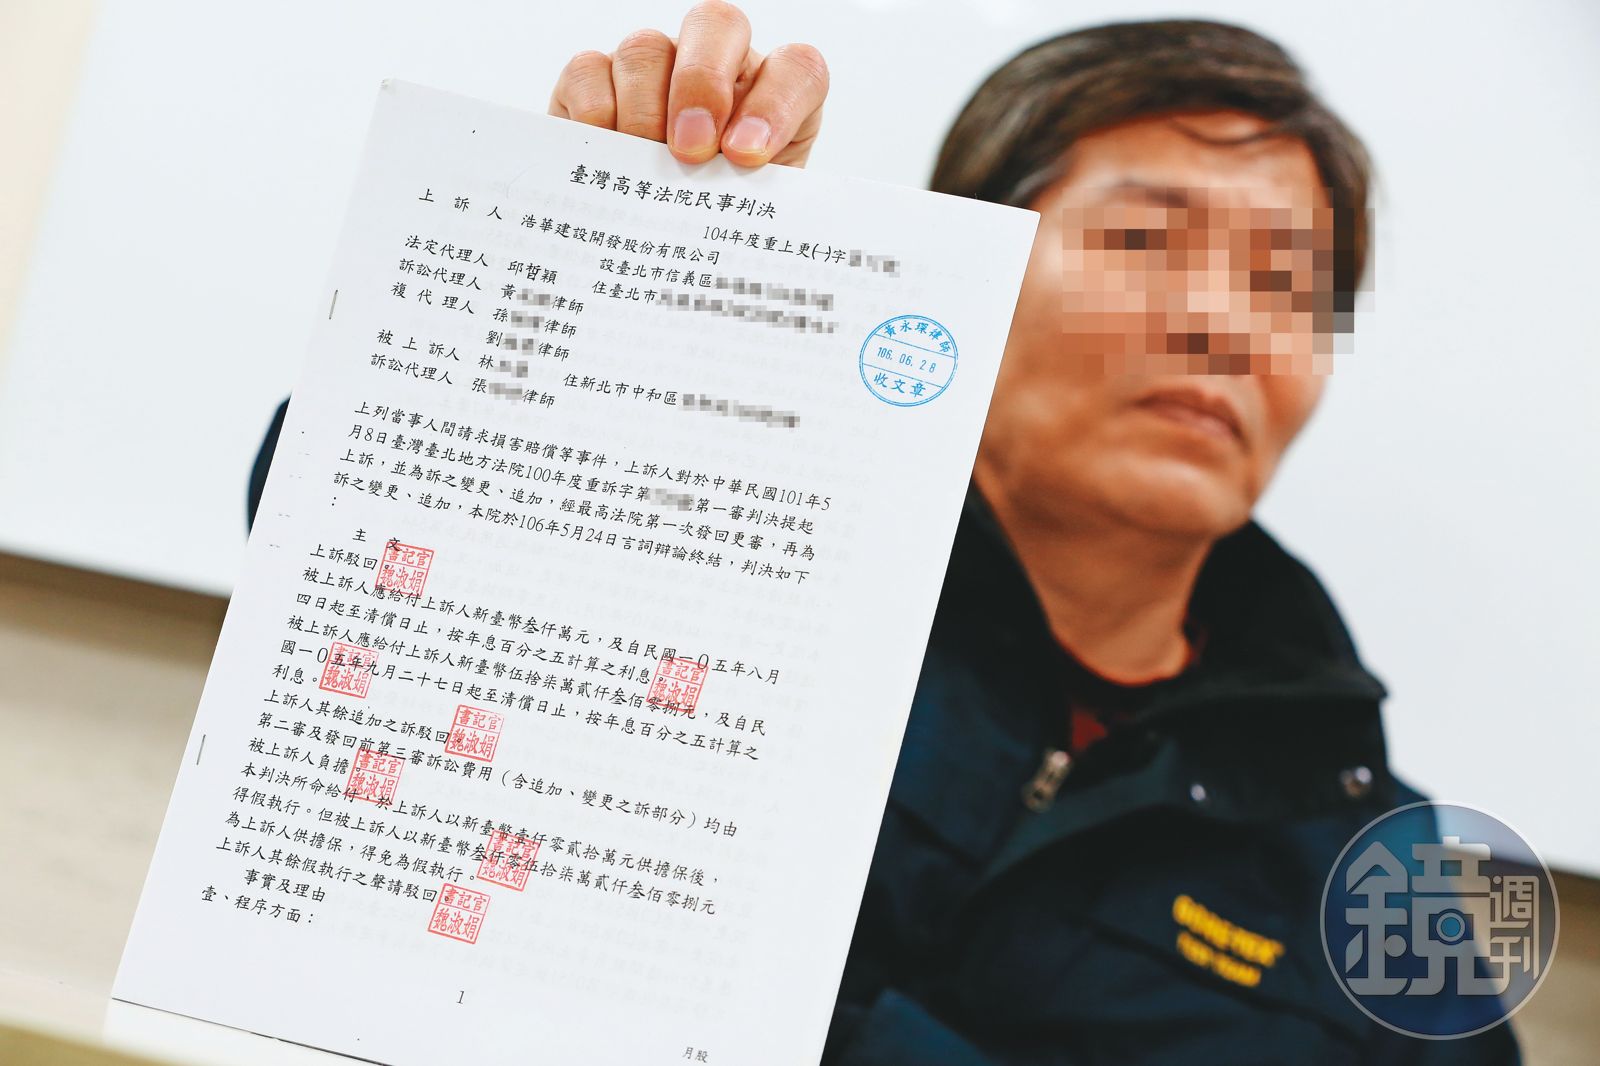 臺灣高等法院民事判決
104年度重上更(一)字
上訴人 浩華建設開發股份有限公司
設臺北市信義區
法定代理人 邱晢穎 住臺北市
訴訟代理人 黃 律師
複代理人 孫 律師
劉 律師
被上訴人 林 住新北市中和區
訴訟代理人 張 律師
上列當事人間請求損害賠償等事件，上訴人對於中華民國101年5
月8日臺灣臺北地方法院100年度重訴字第 第一審判決提起
上訴，並為訴之變更、追加，經最高法院第一次發回更審，再為
訴之變更、追加，本院於106年5月24日言詞辯論終結，判決如下
：
主文
上訴駁回。
被上訴人應給付上訴人新臺幣叁仟萬元，及自民國一０五年八月
四日起至清償日止，按年息百分之五計算之利息。
被上訴人應給付上訴人新臺幣伍拾柒萬貳仟叁佰零捌元，及自民
國一０五年九月二十七日起至清償日止，按年息百分之五計算之
利息。
上訴人其餘追加之訴駁回。
第二審及發回前第三審訴訟費用（含追加、變更之訴部分）均由
被上訴人負擔。
本判決所命給付，於上訴人以新臺幣壹仟零貳拾萬元供擔保後，
得假執行。但被上訴人以新臺幣叁仟零伍拾柒萬貳仟叁佰零捌元
為上訴人供擔保，得免為假執行。
上訴人其餘假執行之聲請駁回。
事實及理由
壹、程序方面：
1
月股
黃永琛律師
106.06.28
收文章
書記官
魏淑娟
書記官
魏淑娟
書記官
魏淑娟
書記官
魏淑娟
書記官
魏淑娟
書記官
魏淑娟
書記官
魏淑娟
鏡週刊